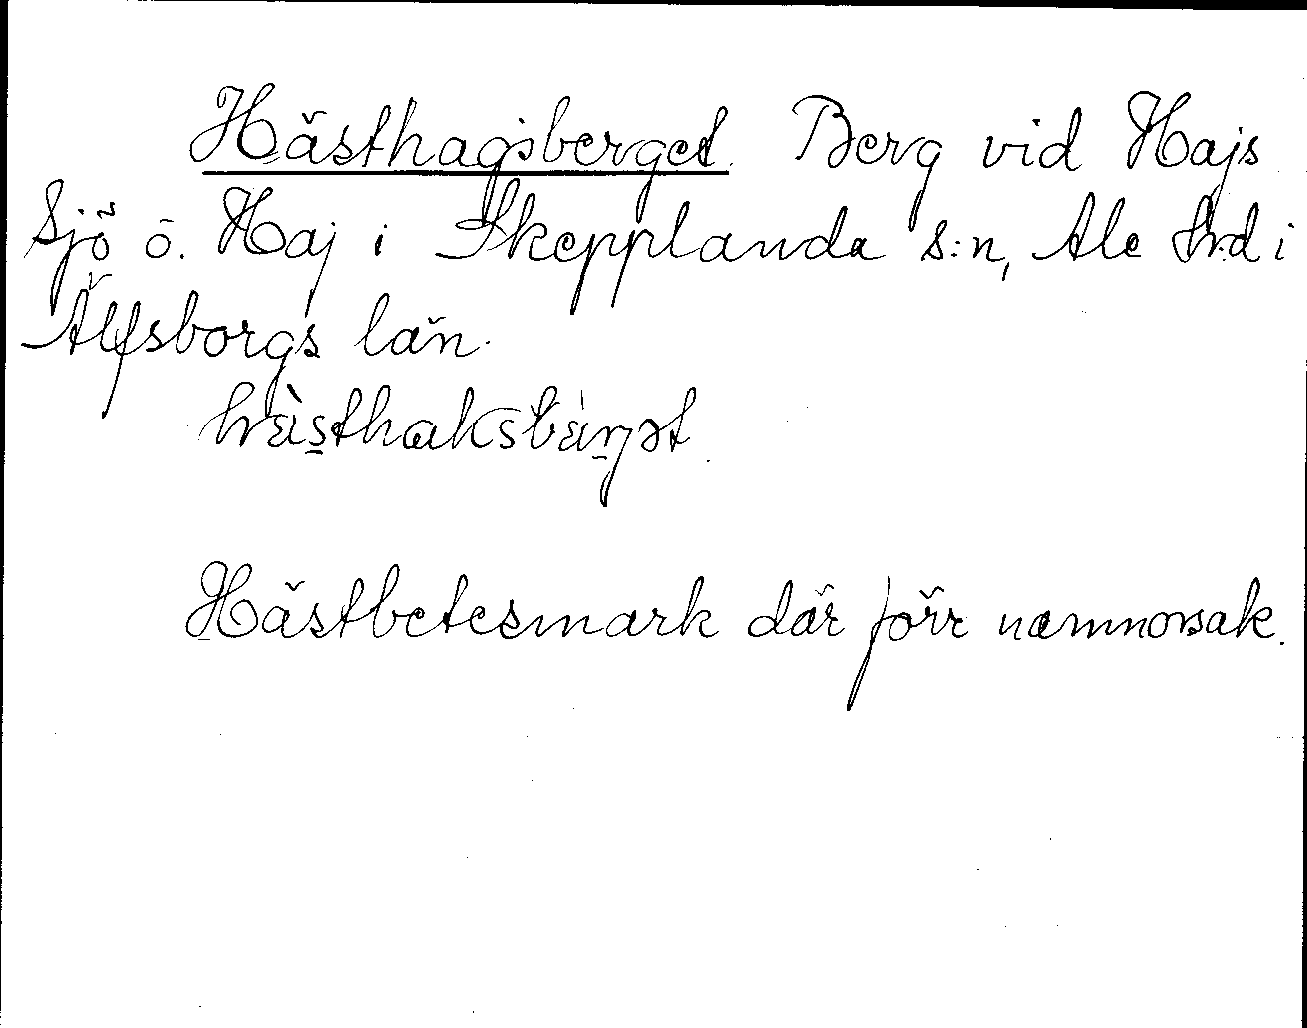 Hästhagsberget. Berg vid Hajs
sjö ö. Haj i Skepplanda s:n, Ale hrd i
Älfsborgs län.
hὲsthaksbὲrjət.
Hästbetesmark där förr namnorsak.